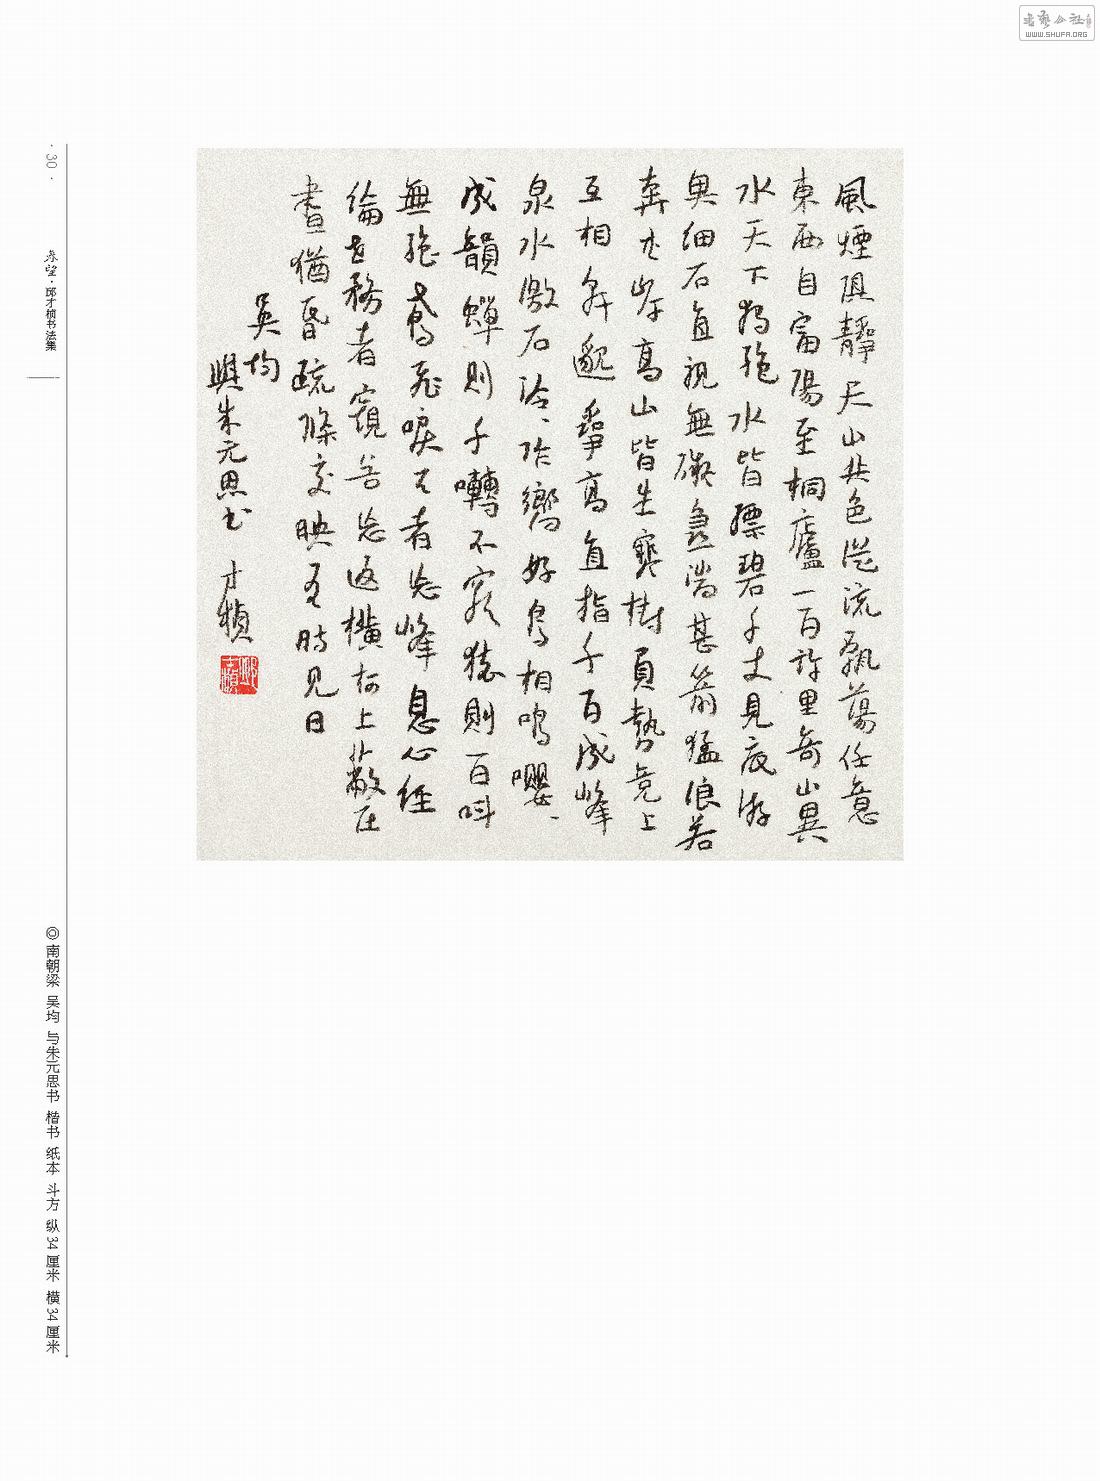 風煙俱靜天山共色從流飄蕩任意
東西自富陽至桐廬一百許里奇山異
水天下獨絕水皆縹碧千丈見底游
魚細石直視無礙急湍甚箭猛浪若
奔夾岸高山皆生寒樹負勢競上
互相軒邈爭高直指千百成峰
泉水激石泠、作響好鳥相鳴嚶、
成韻蟬則千囀不窮猿則百叫
無絕鳶飛唳天者望峰息心經
綸世務者窺谷忘返橫柯上蔽在
晝猶昏疏條交映有時見日
吳均
與朱元思書 才楨
· 30 ·
养望·邱才桢书法集
◎南朝梁 吴均 与朱元思书 楷书 纸本 斗方 纵34厘米 横34厘米
WWW.SHUFA.ORG